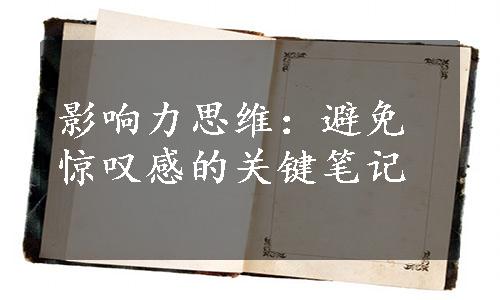 影响力思维：避免
惊叹感的关键笔记